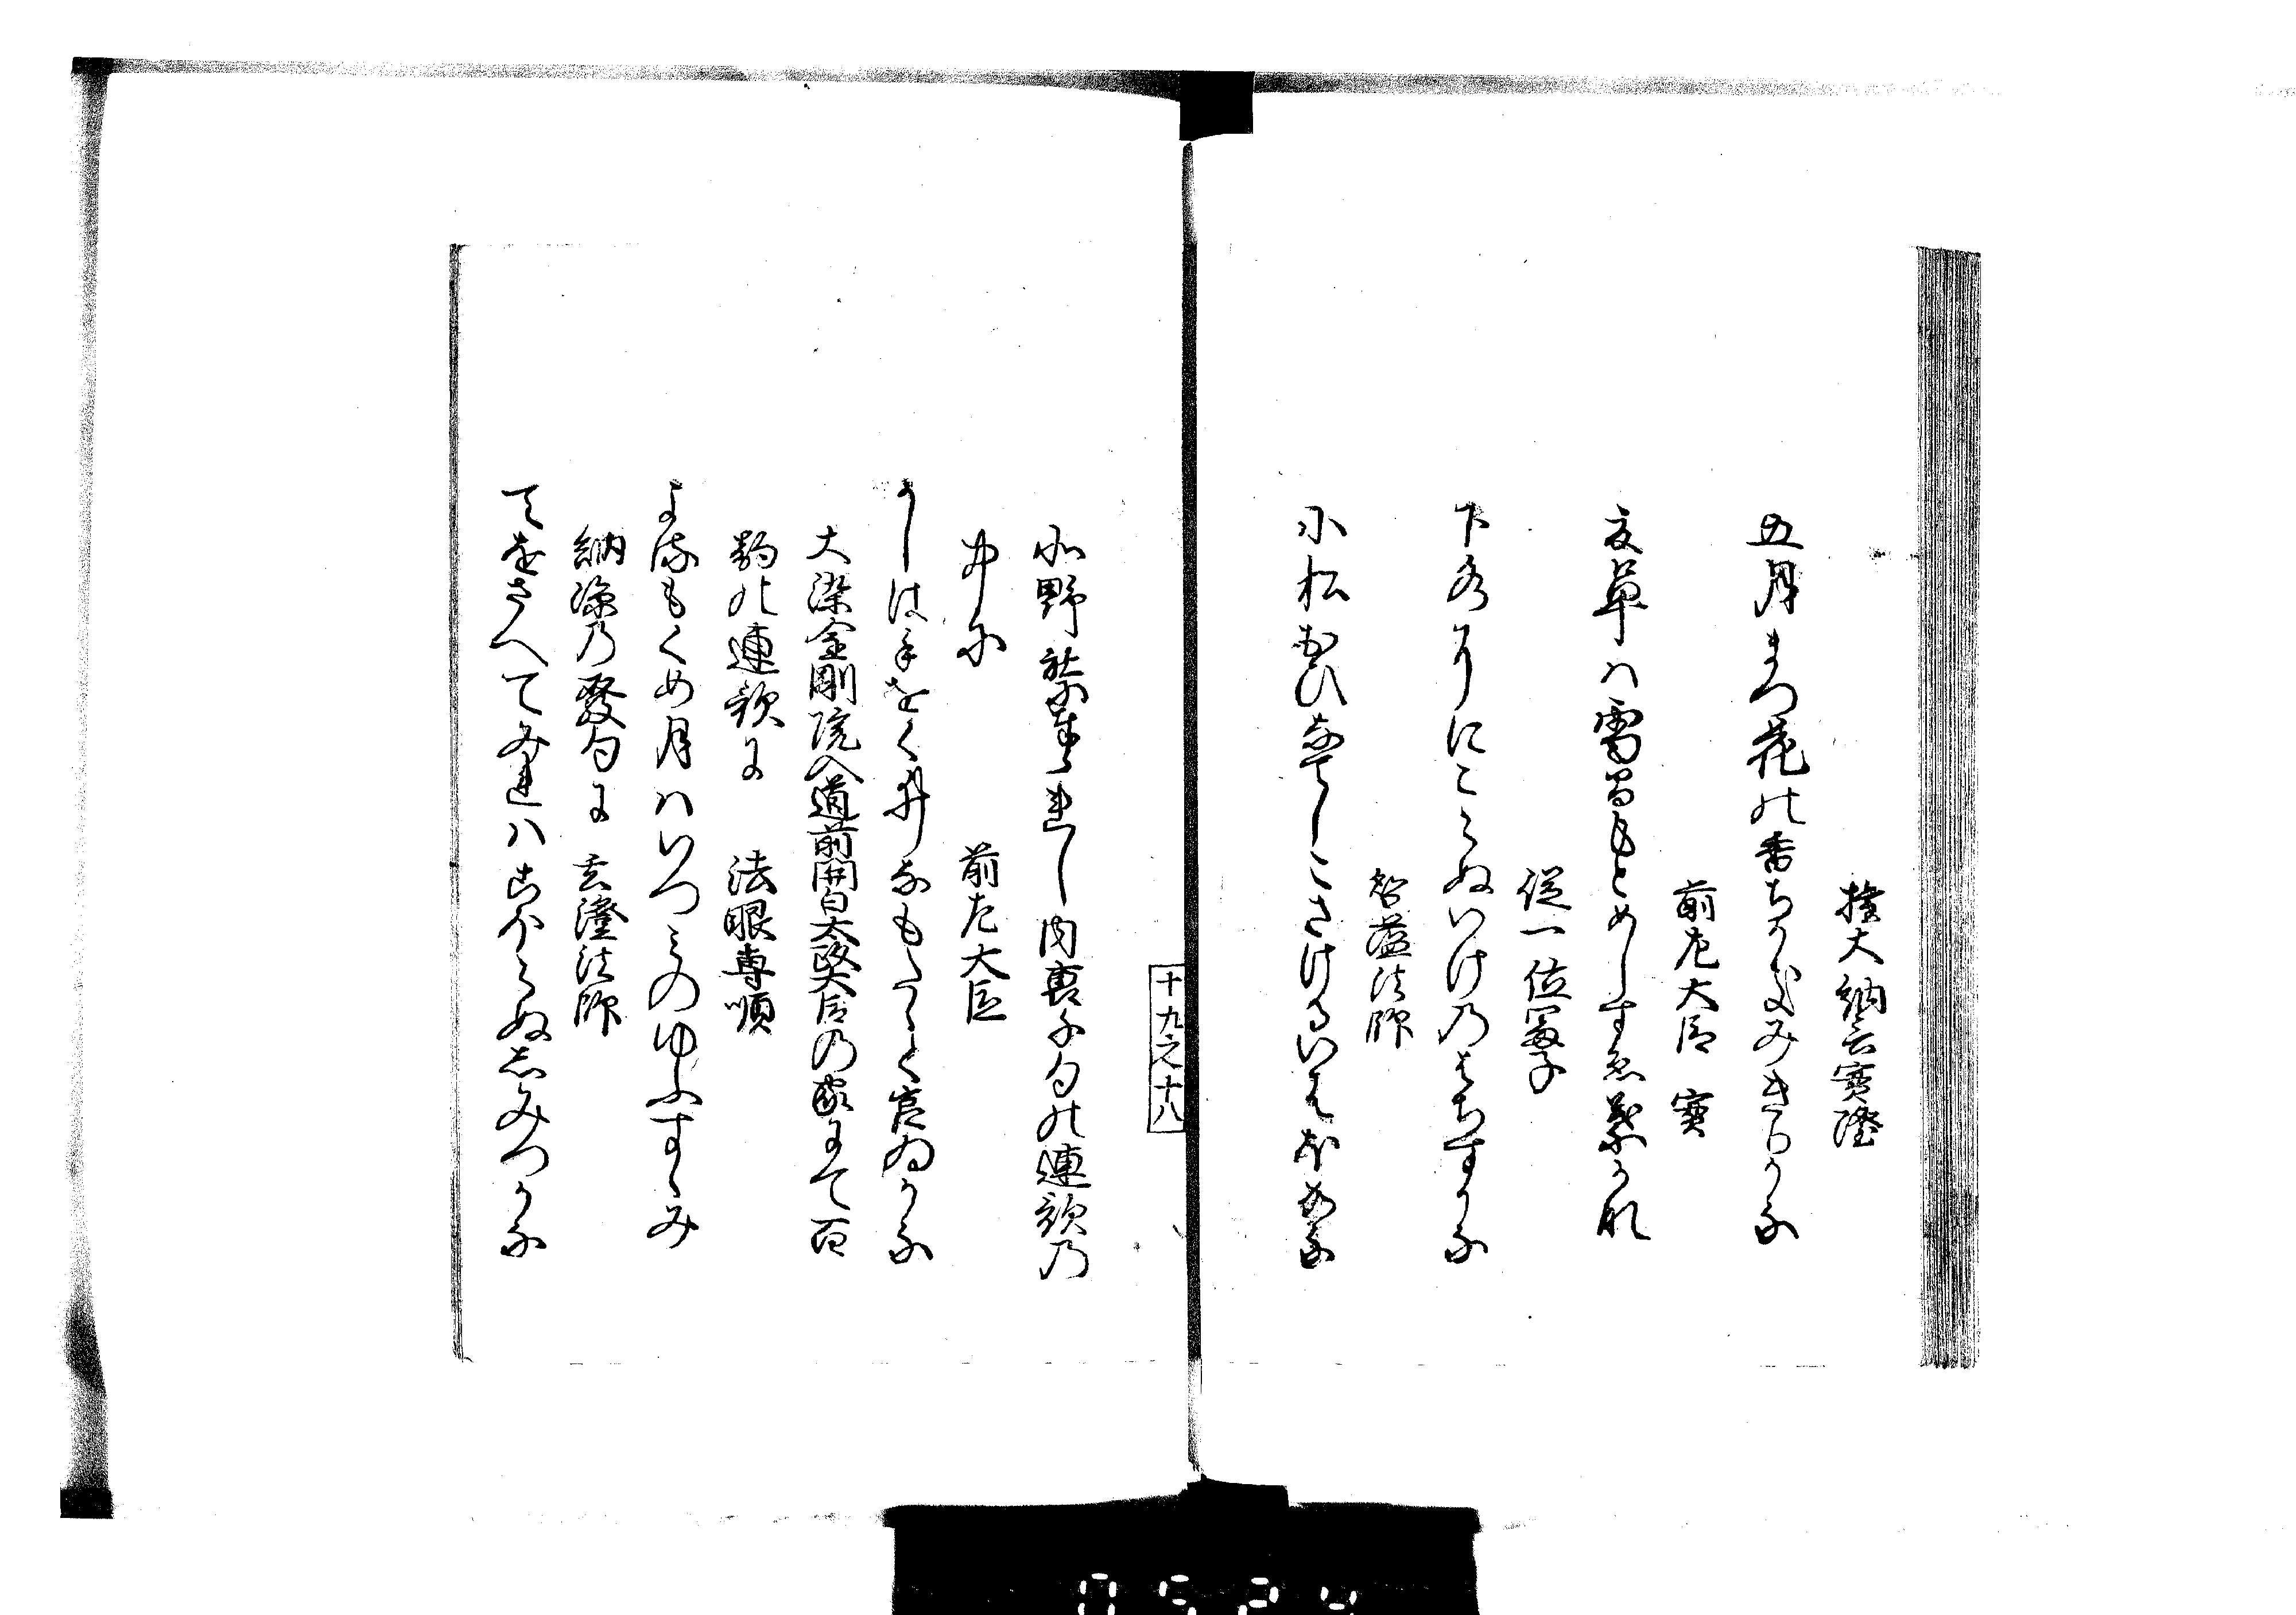 権大納言實澄
五月まつ花の香ちかきみきりかな
前左大臣 實
夏草は雪まもとめしすゑ葉かな
従一位冨子
下水のにこらぬいけのはちすかな
智蘊法師
小松おひなてしこさけるいはほかな
十九之十八
北野社奉れし内裏千句の連歌の
中に 前左大臣
うしは手をく なもたかく宮ゐかな
大染金剛院入道前関白太政大臣の家にて百
韵の連歌に 法眼専順
よるもくめ月はいつみのゆふすゝみ
納涼の發句に 玄澄法師
てをさへてみれはにこらぬしみつかな